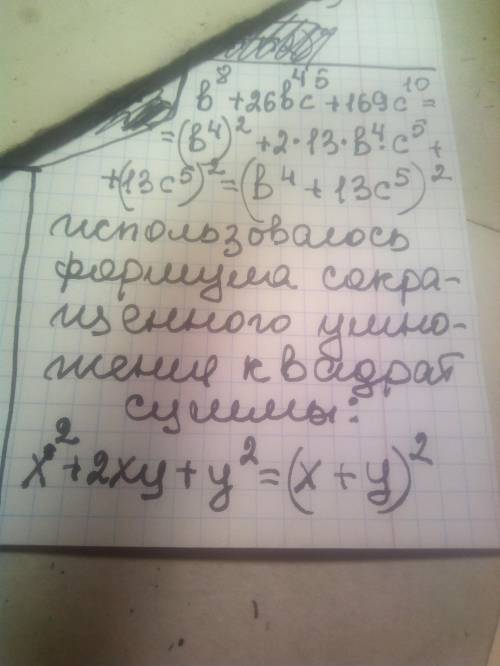 в⁸ + 26в⁴с⁵ + 169с¹⁰ =
= (в⁴)² + 2·13·в⁴·с⁵ +
+ (13с⁵)² = (в⁴ + 13с⁵)²
использовалось
формула сокра-
щенного умно-
жения квадрат
суммы:
x² + 2xy + y² = (x + y)²